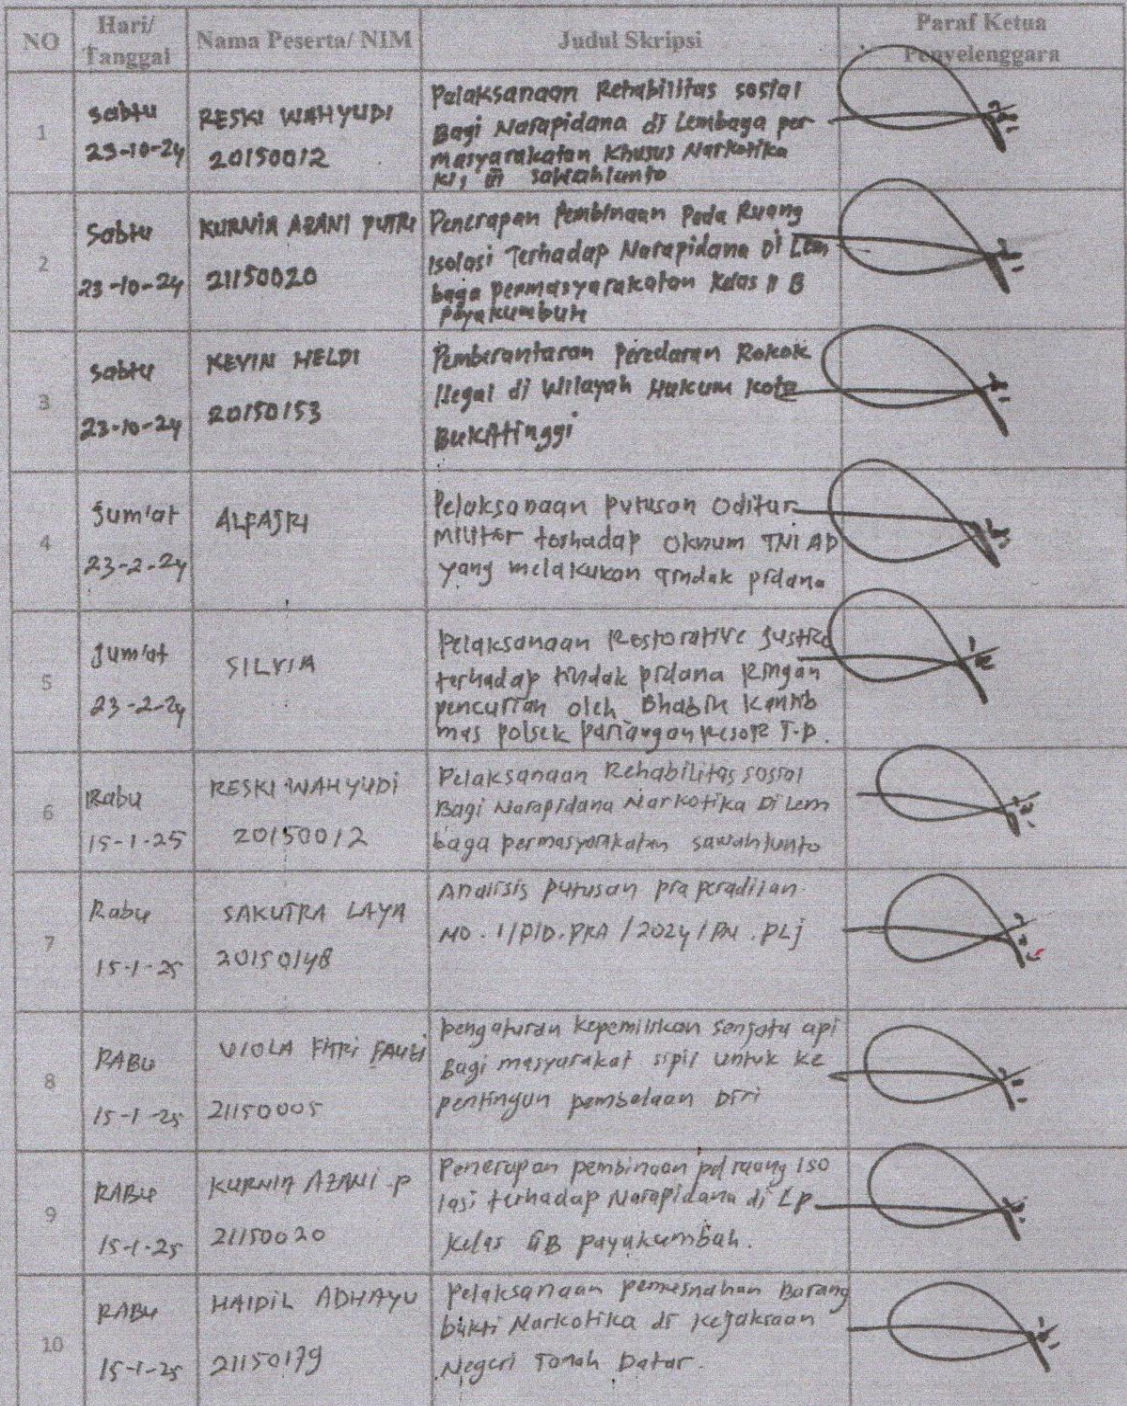 NO
Hari/
Tanggal
Nama Peserta/ NIM
Judul Skripsi
Paraf Ketua
Penyelenggara
1
Sabtu
23-10-24
RESKI WAHYUDI
20150012
Pelaksanaan Rehabilitas sosial
Bagi Narapidana di Lembaga per
masyarakatan Khusus Narkotika
Kls III Sawahlunto
2
Sabtu
23-10-24
KURNIA AZANI PUTRI
21150020
Penerapan Pembinaan Pada Ruang
Isolasi Terhadap Narapidana Di Lem
baga permasyarakatan Kelas II B
Payakumbuh
3
Sabtu
23-10-24
KEVIN HELDI
20150153
Pemberantaran Peredaran Rokok
Ilegal di Wilayah Hukum Kota
Bukittinggi
4
Jum'at
23-2-24
ALFAJRI
Pelaksanaan Putusan Oditur
Militer terhadap Oknum TNI AD
yang melakukan Tindak pidana
5
Jum'at
23-2-24
SILVIA
Pelaksanaan Restorative Justice
terhadap tindak pidana Ringan
pencurian oleh Bhabin Kamtib
mas polsek Pariangan Resor T.D.
6
Rabu
15-1-25
RESKI WAHYUDI
20150012
Pelaksanaan Rehabilitas sosial
Bagi Narapidana Narkotika Di Lem
baga permasyarakatan sawahlunto
7
Rabu
15-1-25
SAKUTRA LAYA
20150148
Analisis putusan pra peradilan
NO. 1/PID.PRA/2024/PN.PLj
8
RABU
15-1-25
VIOLA FITRI FAUZI
21150005
pengaturan kepemilikan senjata api
Bagi masyarakat sipil untuk ke
pentingan pembelaan Diri
9
RABU
15-1-25
KURNIA AZANI.P
21150020
Penerapan pembinaan pd ruang Iso
lasi terhadap Narapidana di Lp
Kelas IIB payakumbuh.
10
RABU
15-1-25
HAIDIL ADHAYU
21150179
Pelaksanaan pemusnahan Barang
bukti Narkotika di Kejaksaan
Negeri Tanah Datar.